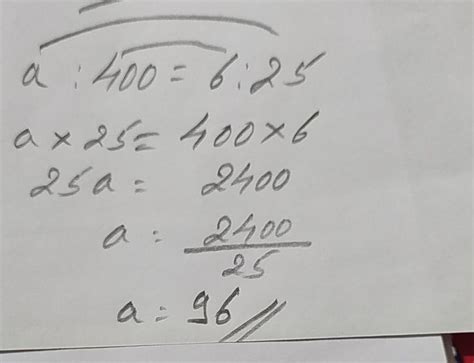 a : 400 = 6 : 25
a × 25 = 400 × 6
25a = 2400
a : 2400/25
a : 96 //